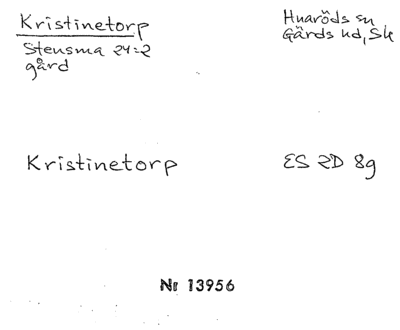 Kristinetorp
Stensma 24:2
gård
Huaröds sn
Gärds hd, Sk
Kristinetorp
ES 2D 8g
Nr 13956